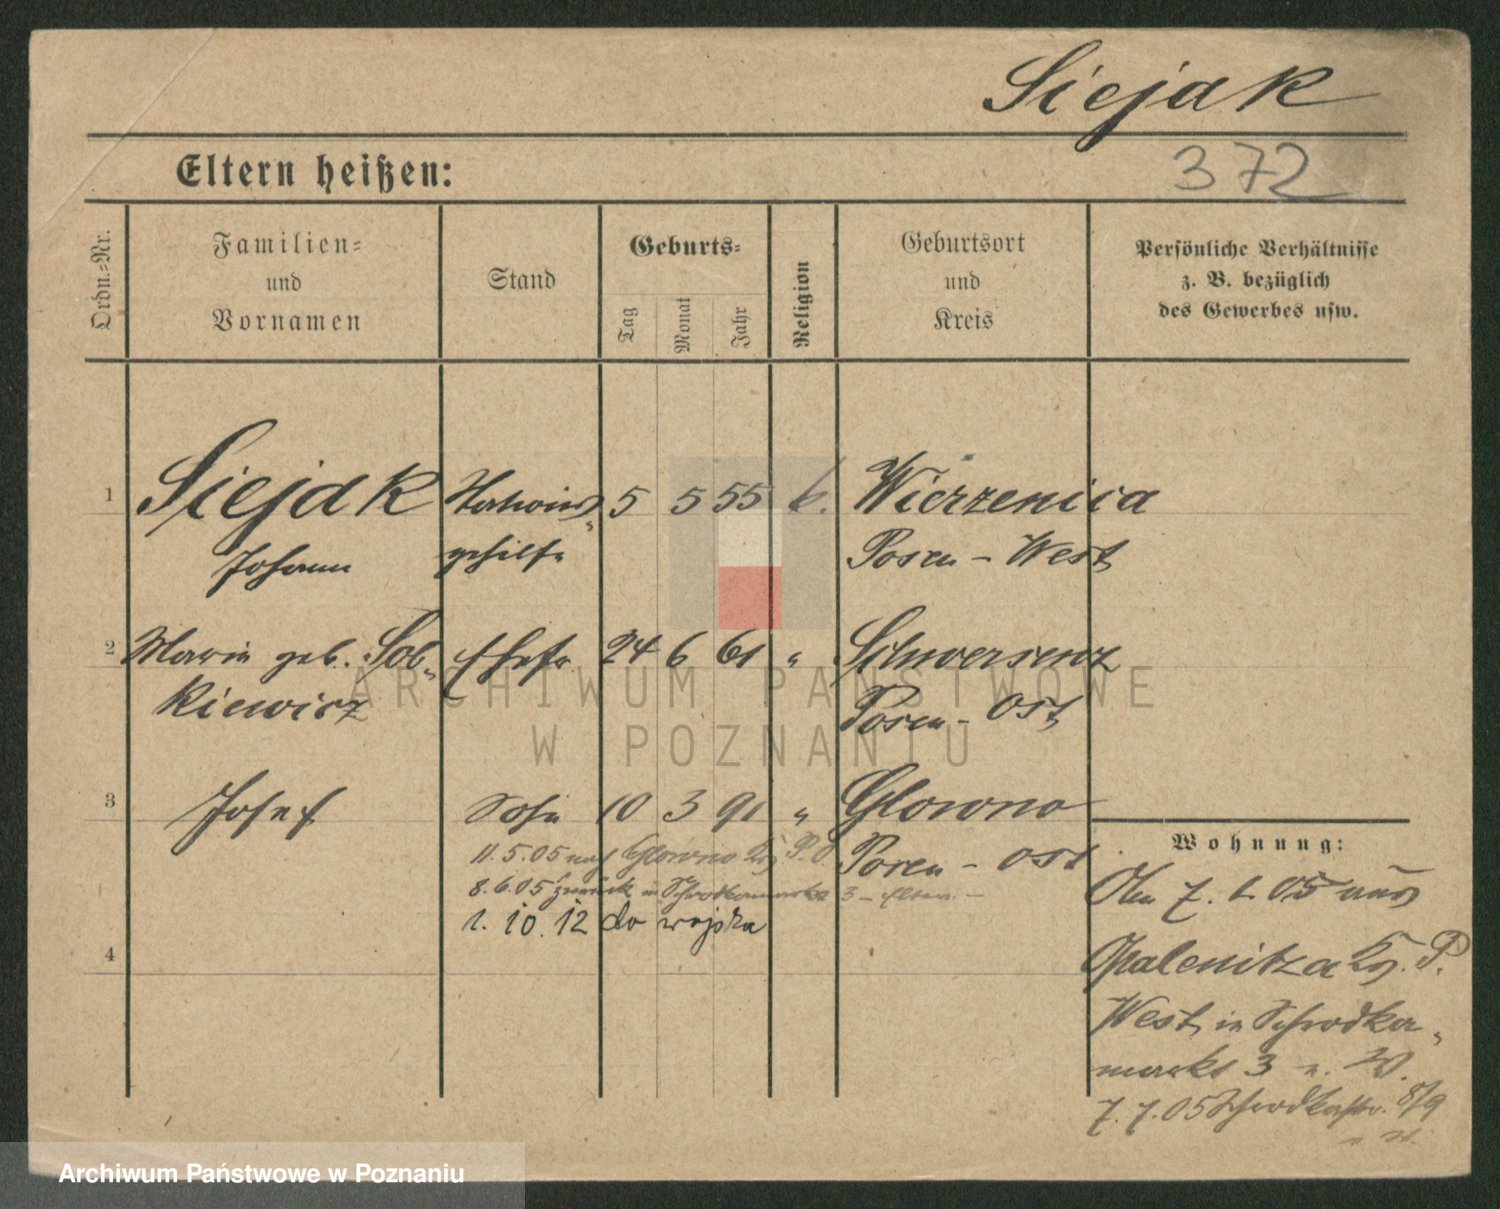 Siejak
372
Eltern heißen:
Ordn.-Nr.
Familien-
und
Vornamen
Stand
Geburts-
Tag
Monat
Jahr
Religion
Geburtsort
und
Kreis
Persönliche Verhältnisse
z. B. bezüglich
des Gewerbes usw.
1 Siejak 5 5 55 k. Wierzenica
Johann gehilfe Posen - West
2 Marie geb. Sob- Ehefr. 24 6 61 " Schwersenz
kiewicz Posen - Ost
3 Josef Sohn 10 3 91 " Glowno
Posen - Ost
11.5.05 nach Glowno Krs P. O.
8.6.05 zurück in Schrodkamarkt 3 - Eltern -
1. 10. 12 do wojska
4
Wohnung:
7. 05 aus
Opalenitza Krs. P.
West in Schrodka-
markt 3
7. 7. 05 Schrodkastr. 8/9
ARCHIWUM PAŃSTWOWE
W POZNANIU
Archiwum Państwowe w Poznaniu